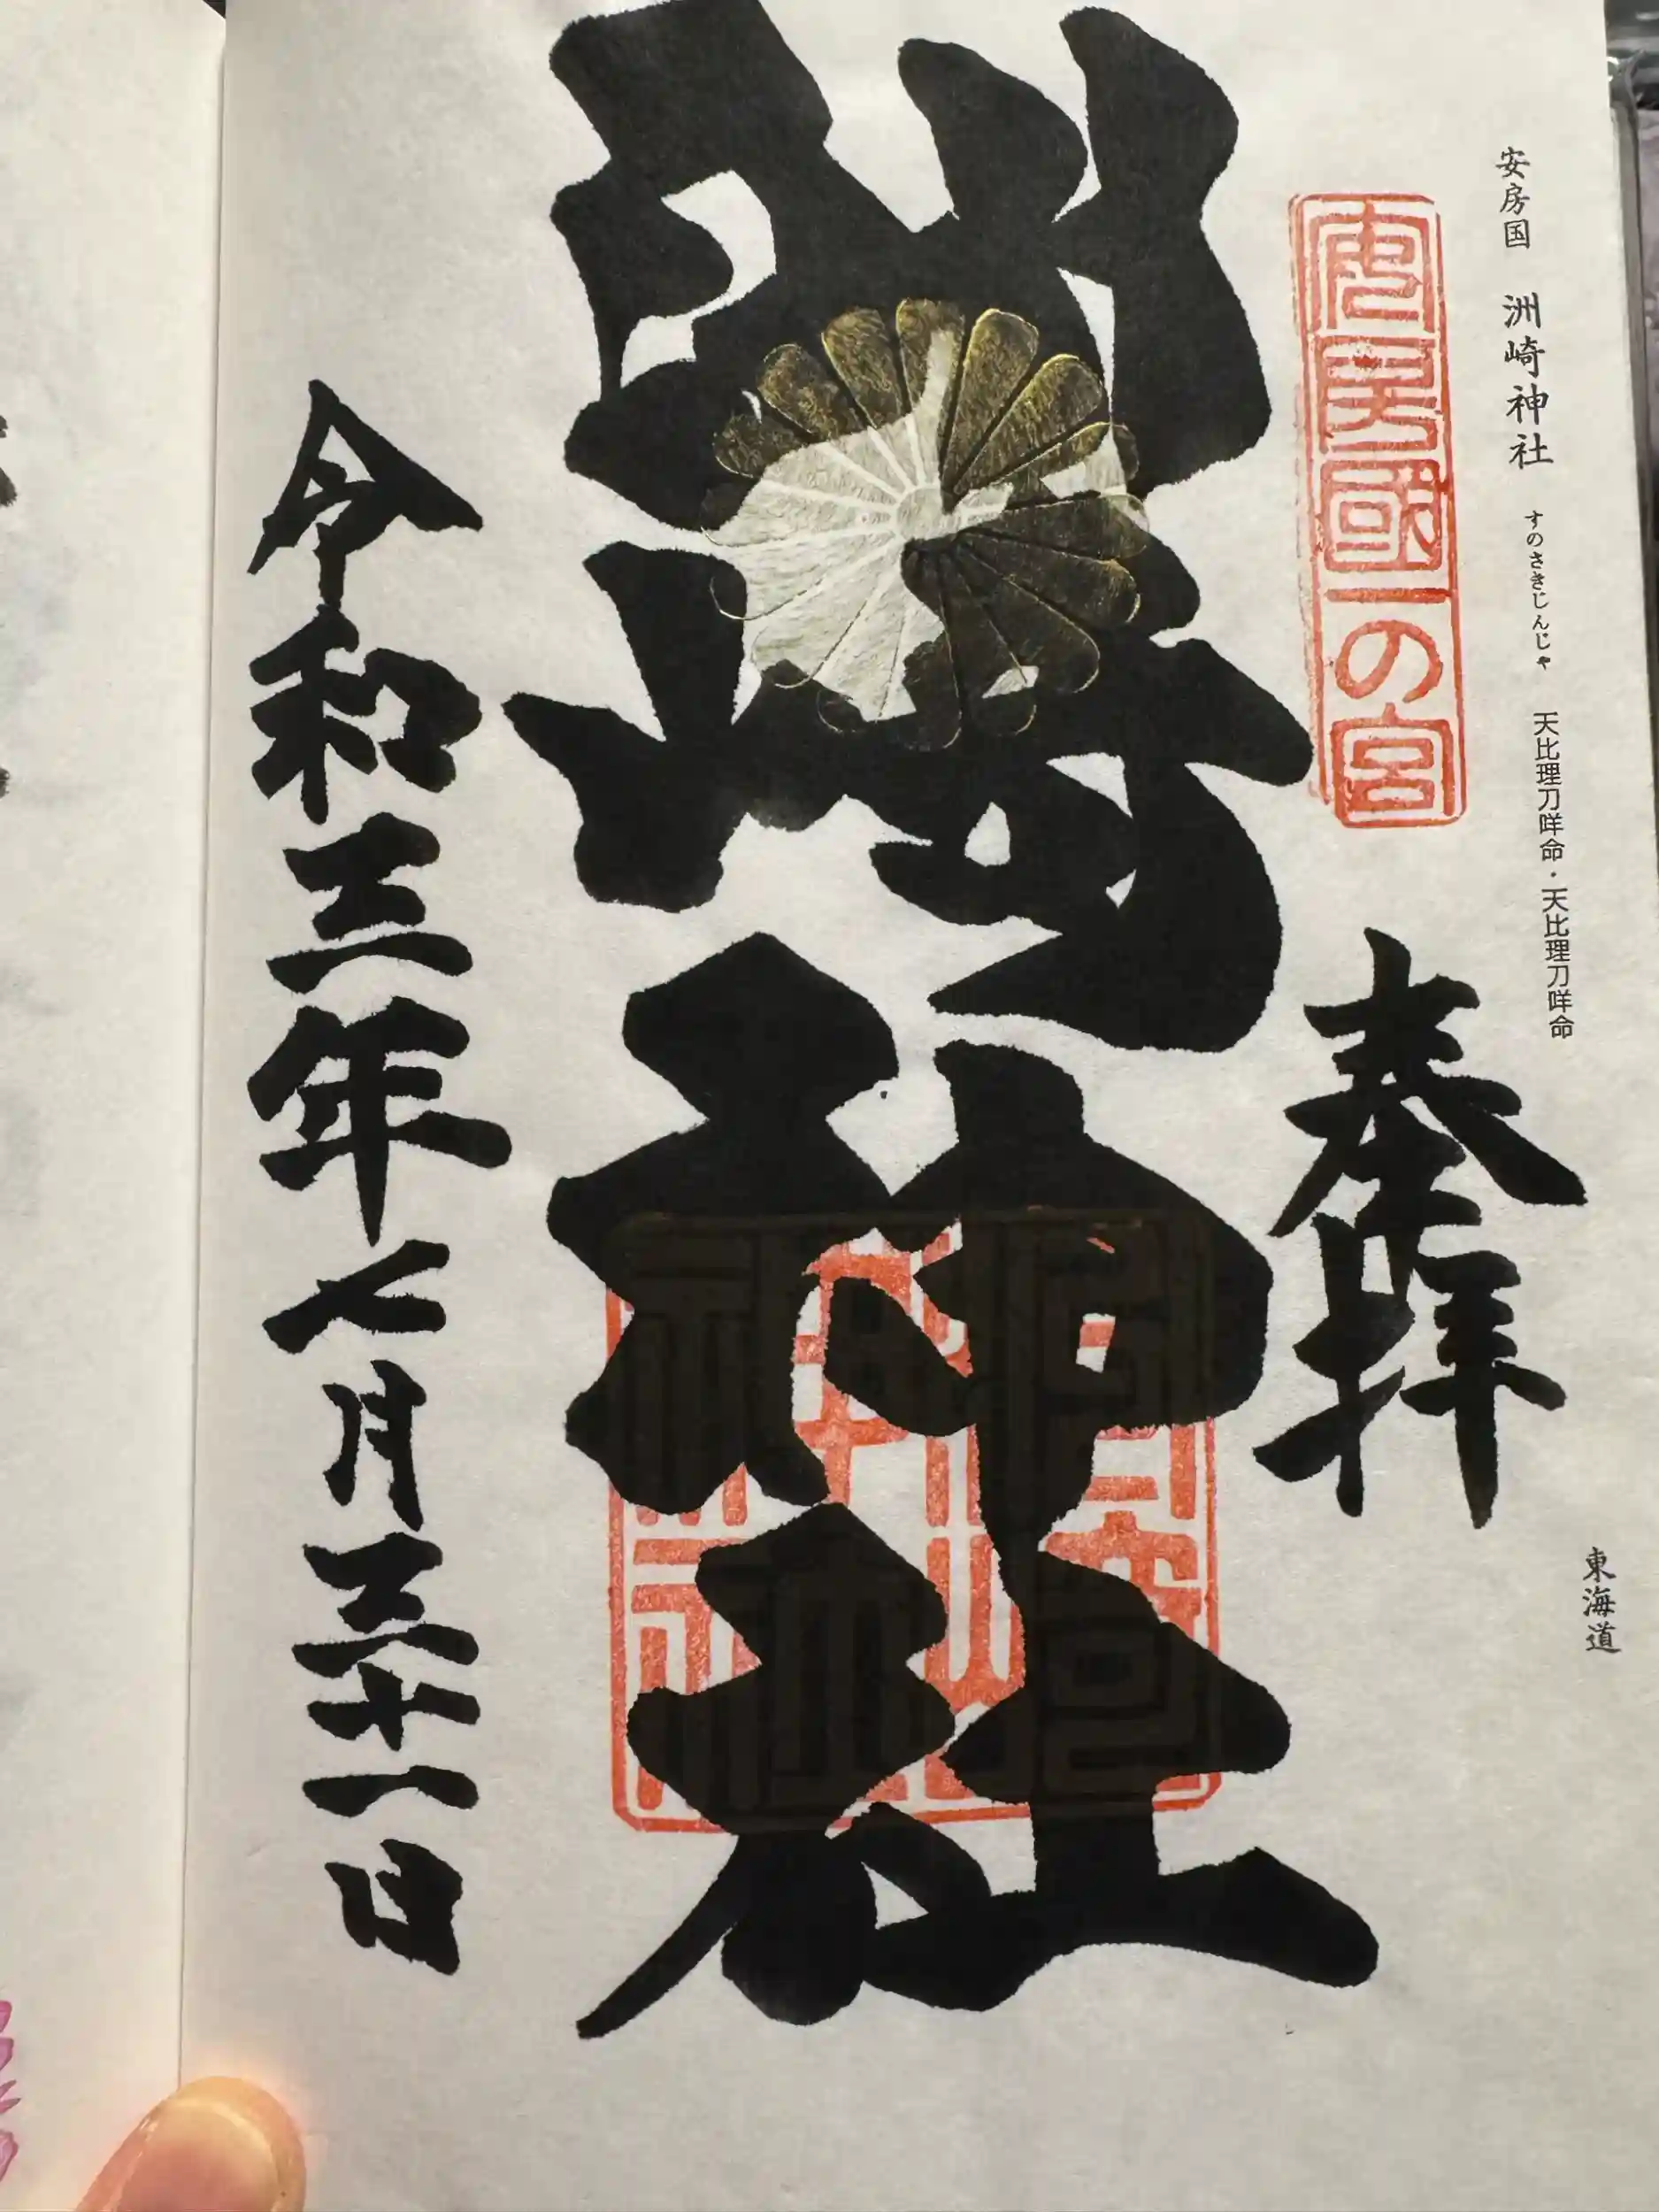 東海道
安房国 洲崎神社 すのさきじんじゃ 天比理刀咩命・天比理刀咩命
安房國一の宮
奉拝
洲崎神社
令和三年七月三十一日